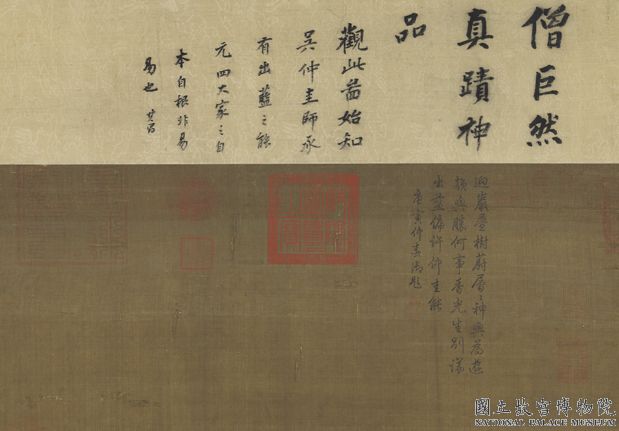 僧巨然
真蹟神
品
觀此啚始知
吳仲圭師承
有出藍之能
元四大家之自
本自根非易
易也 其昌
迴巖疊樹蔚層層神與為
勝何事香光生別議
出藍偏許仲圭能
庚寅仲春御題
國立故宮博物院
NATIONAL PALACE MUSEUM